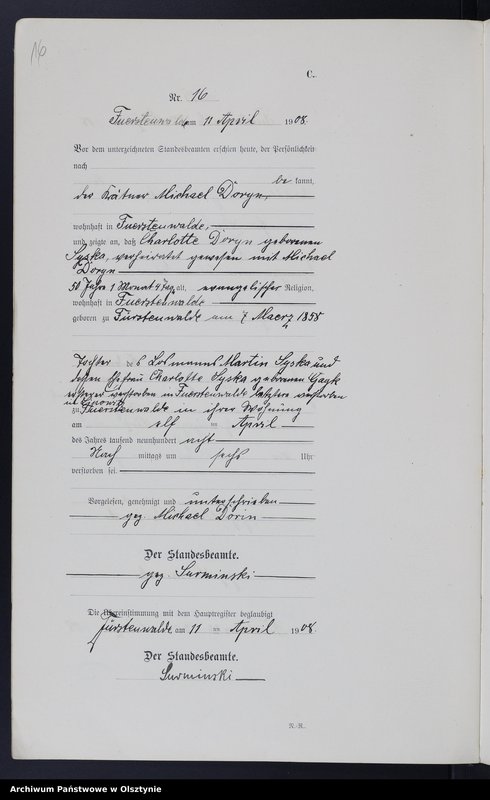 16
C.
Nr. 16
Fuerstenwalde am 11 April 1908.
Vor dem unterzeichneten Standesbeamten erschien heute, der Persönlichkeit
nach
be kannt,
der Kätner Michael Doryn,
wohnhaft in Fuerstenwalde,
und zeigte an, daß Charlotte Doryn geborenen
Syska, verheiratet gewesen mit Michael
Doryn
50 Jahre 1 Monat 4 Tag alt, evangelischer Religion,
wohnhaft in Fuerstenwalde
geboren zu Fürstenwalde am 7 Maerz 1858
Tochter des Losmanns Martin Syska und
dessen Ehefrau Charlotte Syska geborenen
ersterer verstorben in Fuerstenwalde letztere verstorben
in
zu Fuerstenwalde in ihrer Wohnung
am elf ten April
des Jahres tausend neunhundert acht
Nach mittags um sechs Uhr
verstorben sei.
Vorgelesen, genehmigt und unterschrieben
gez. Michael Dorin
Der Standesbeamte.
gez. Surminski
Die Übereinstimmung mit dem Hauptregister beglaubigt
Fürstenwalde am 11 ten April 1908.
Der Standesbeamte.
Surminski
N.-R.
Archiwum Państwowe w Olsztynie